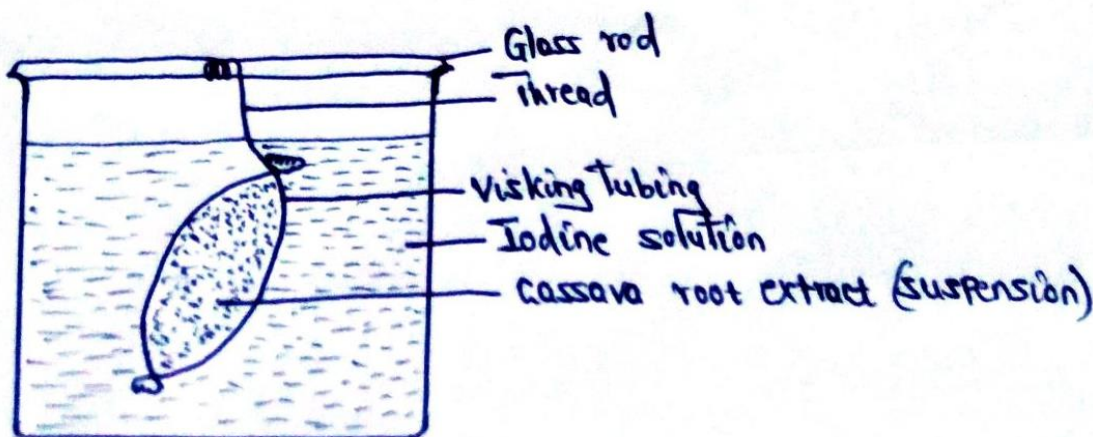 Glass rod
Thread
Visking Tubing
Iodine solution
Cassava root extract (suspension)